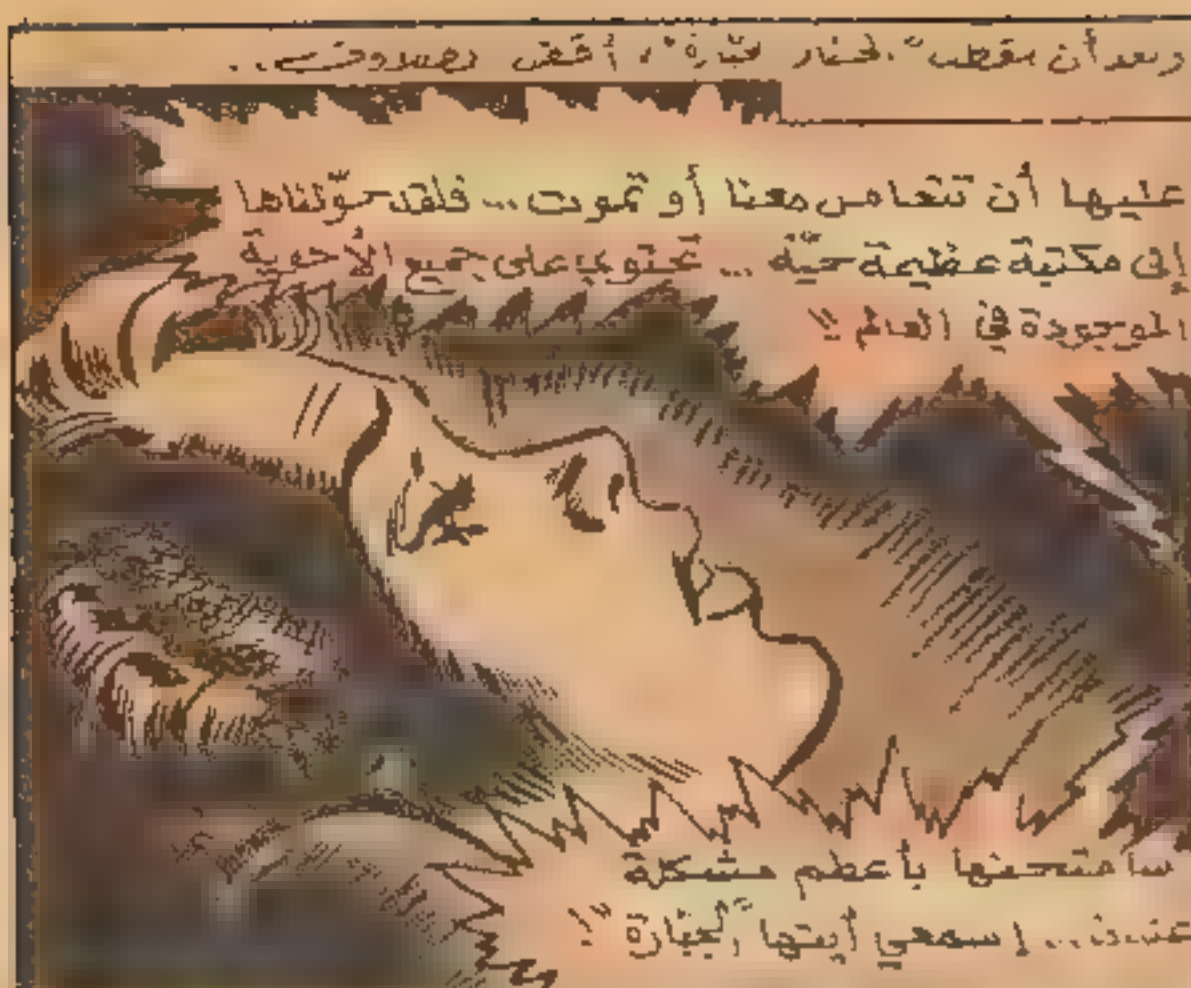 وبعد أن
عليها أن تتعامل معنا أو تموت... فلقد حوّلناها
إلى مكتبة عظيمة حيّة ... تحتوي على جميع الأجوبة
الموجودة في العالم !!
سأمتحنها بأعظم مشكلة
عندنا... إسمعي أيتها الجبّارة !!